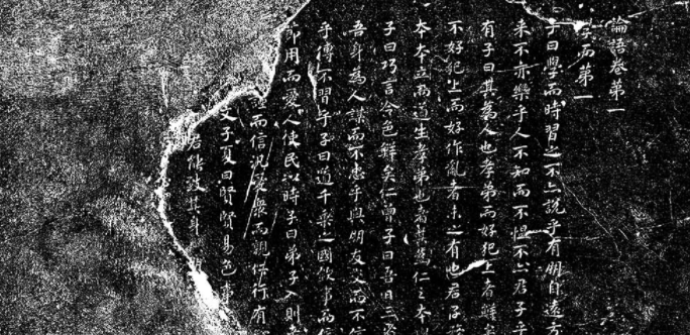 論語卷第一
學而第一
子曰學而時習之不亦說乎有朋自遠方
来不亦樂乎人不知而不慍不亦君子乎
有子曰其爲人也孝弟而好犯上者鮮
不好犯上而好作亂者未之有也君子務
本本立而道生孝弟也者其爲仁之本
子曰巧言令色鮮矣仁曾子曰吾日三省
吾身爲人謀而不忠乎與朋友交而不信
乎傳不習乎子曰道千乘之國敬事而信
用而愛人使民以時子曰弟子入則
而信汎愛衆而親仁行有
文子夏曰賢賢易色事
君能致其身